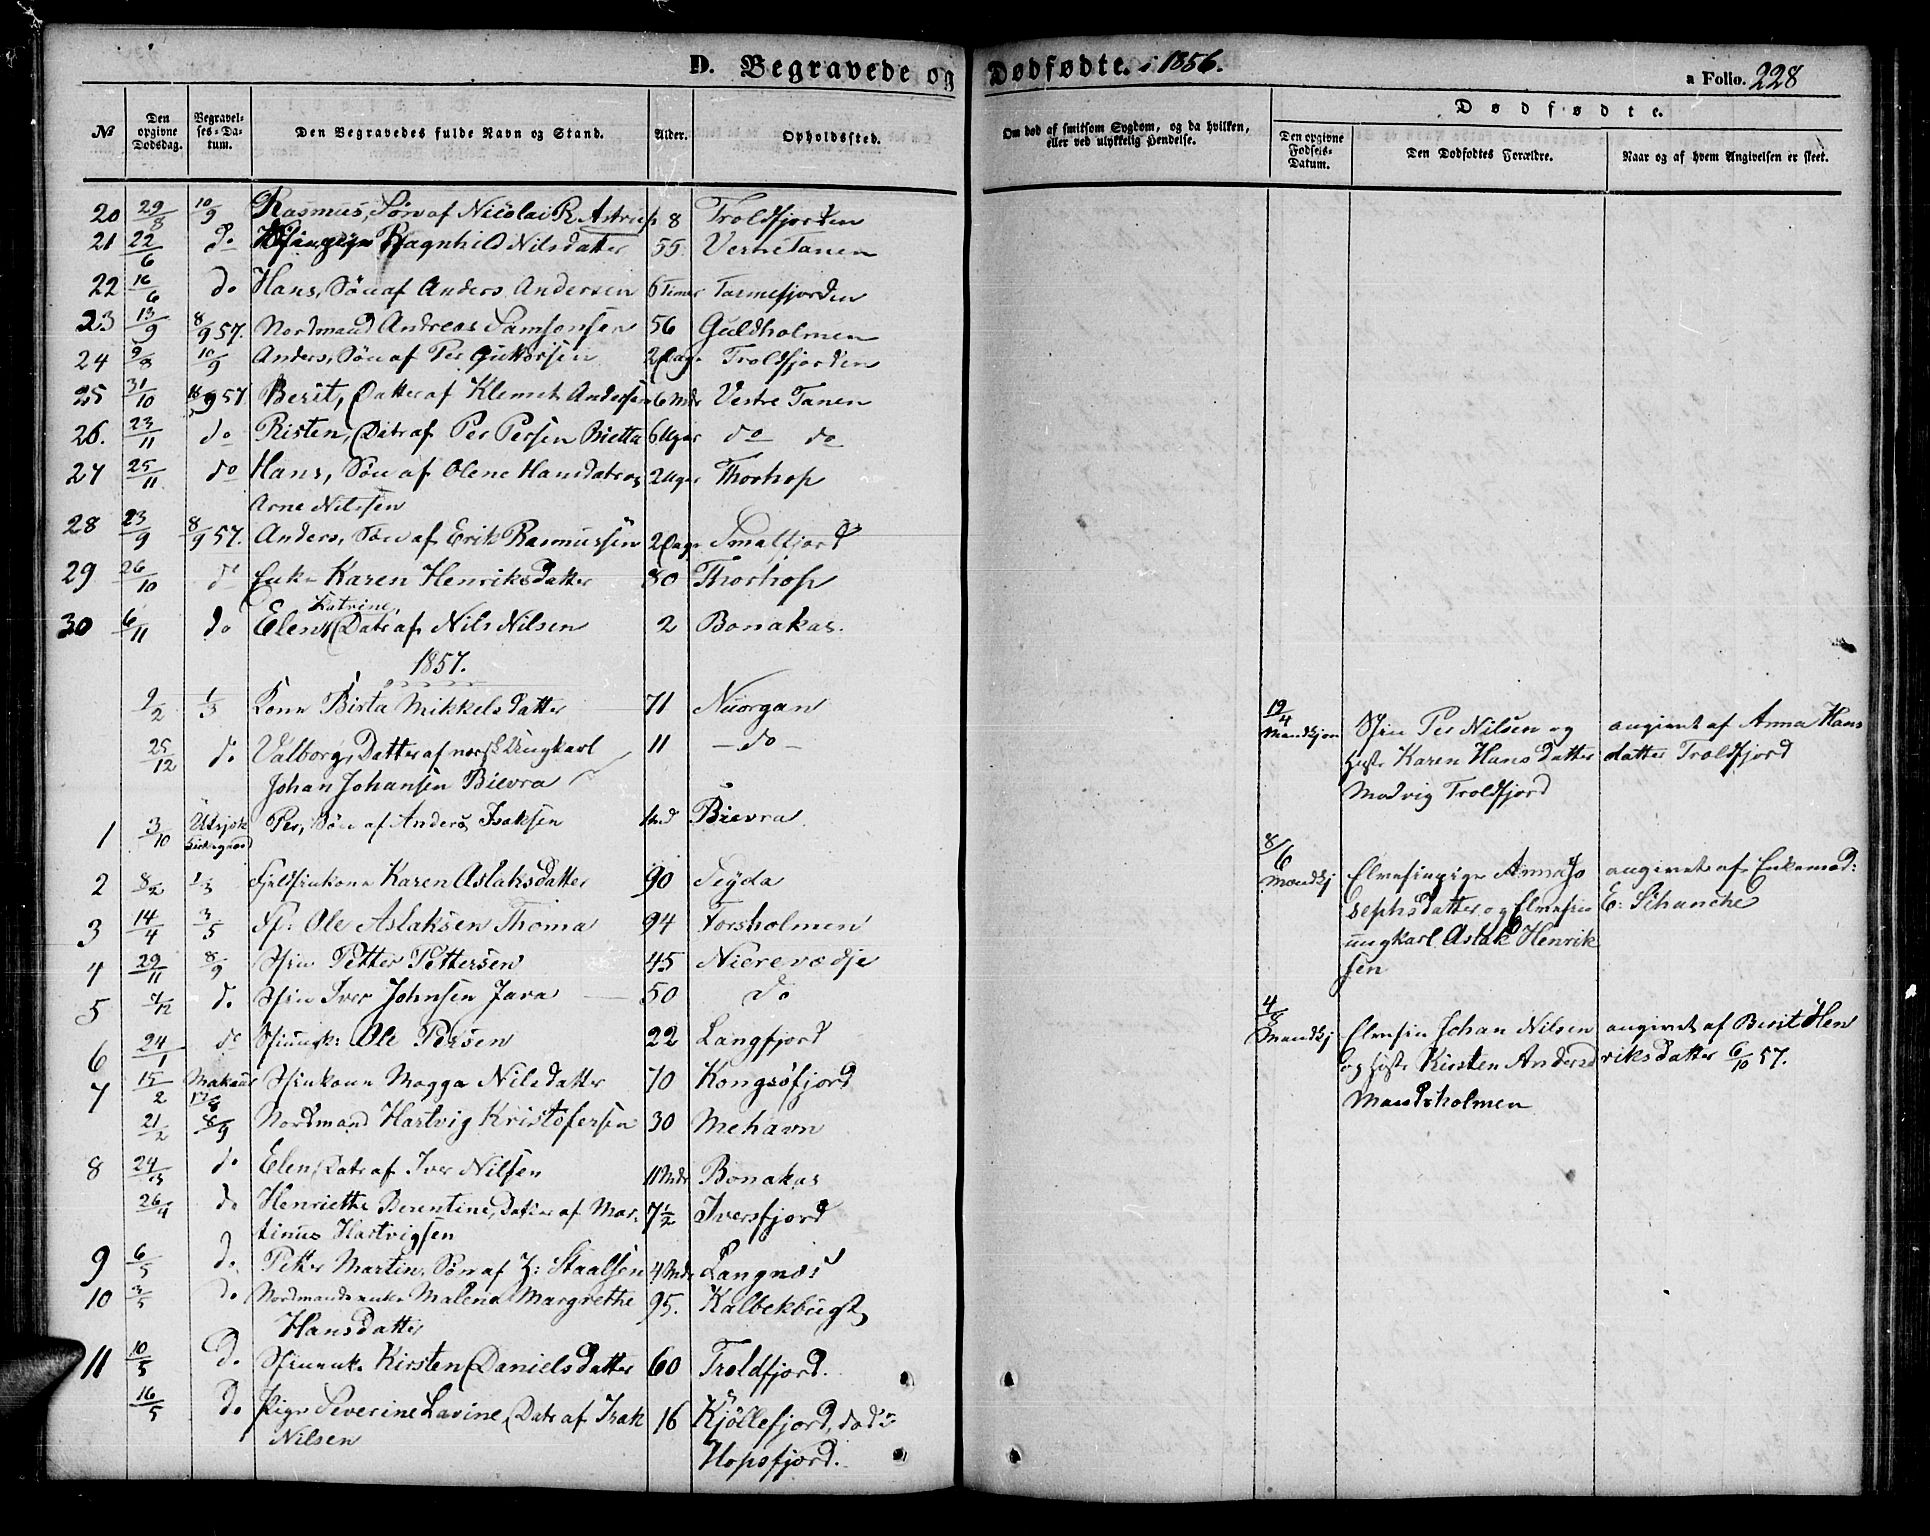 D. Begravede og Dødfødte. i 1856.
a Folio. 228
№ Den opgivne Dødsdag. Begravelses-Datum. Den Begravedes fulde Navn og Stand. Alder. Opholdssted.
Om død af smitsom Sygdom, og da hvilken, eller ved ulykkelig Hendelse.
Dødfødte.
Den opgivne Fødsels-Datum. Den Dødfødtes Forældre. Naar og af hvem Angivelsen er skeet.
20 29/8 10/9 Rasmus, Søn af Nicolai R. Astrup 8 Troldfjorden
21 22/6 do Ragnhild Nilsdatter 55 Vestre Tanen
22 16/6 do Hans, Søn af Anders Andersen 6 Timer Tarmefjorden
23 13/9 8/9 57. Nordmand Andreas Samsonsen 56 Guldholmen
24 9/8 10/9 Anders, Søn af Per Guttorsen 2 Dage Troldfjorden
25 31/10 8/9 57 Berit, Datter af Klemet Andersen 6 Mdr Vestre Tanen
26. 23/11 do Risten, Datr af Per Persen Bietta 6 Uger do do
27 25/11 do Hans, Søn af Olene Hansdatr og 2 Uger Thorhop
Arne Nilssen
28 23/9 8/9 57. Anders, Søn af Erik Rasmussen 2 Dage Smalfjord
29 26/10 do Enke Karen Henriksdatter 80 Thorhop
Katrine,
30 6/11 do Elen, Datr af Nils Nilsen 2 Bonakas.
1857.
9/2 1/3 Kone Birta Mikkelsdatter 71 Nuorgan
25/12 do Valborg, Datter af norsk Ungkarl 11 - do -
Johan Johansen Bievra
1 3/10 Utsjok Kirkegaard Per, Søn af Anders Isaksen Bievra
2 8/2 1/3 Fjeldfinkone Karen Aslaksdatter 90 Seyda
3 14/4 3/5 Ff: Ole Aslaksen Thoma 94 Forsholmen
4 29/11 8/9 Søfin Petter Pettersen 45 Nierevædje
5 do Søfin Iver Johnsen Java 50 do
6 24/1 do Ole Persen 22 Langfjord
7 15/2 Makaur Søfinkone Magga Nilsdatter 70 Kongsøfjord
21/2 8/9 Nordmand Hartvig Kristofersen 30 Mehavn
8 24/3 do Elen, Datr af Iver Nilsen 11 Mdr Bonakas
26/4 do Henriette Berentine, Datter af Mar- 7 1/2 Iversfjord
tinus Hartvigsen
9 6/5 do Petter Martin, Søn af H: Staalsen 4 Mdr Langnes
10 3/5 do Nordmandsenke Malena Margrethe 95. Kalbekbugt
Hansdatter
11 10/5 do Søfinenke Kirsten Danielsdatter 60 Troldfjord.
16/5 do Pige Severine Lavine, Datr af Isak 16 Kjøllefjord, død i
Nilsen Hopsfjord.
19/4 Mandkjøn Søfin Per Nilsen og angivet af Anna Hans
Hustr Karen Hansdatter datter Troldfjord
Madvig Troldfjord
8/6 Mandkj Elvefinpige Anna Jo angivet af Enkemad:
sephsdatter og Elvefin E: Schanche
ungkarl Aslak Henrik
sen
4/8 Mandkj Elvefin Johan Nilsen angivet af Berit Hen
og Hustr Kirsten Andersd riksdatter 6/10 57.
Mandsholmen